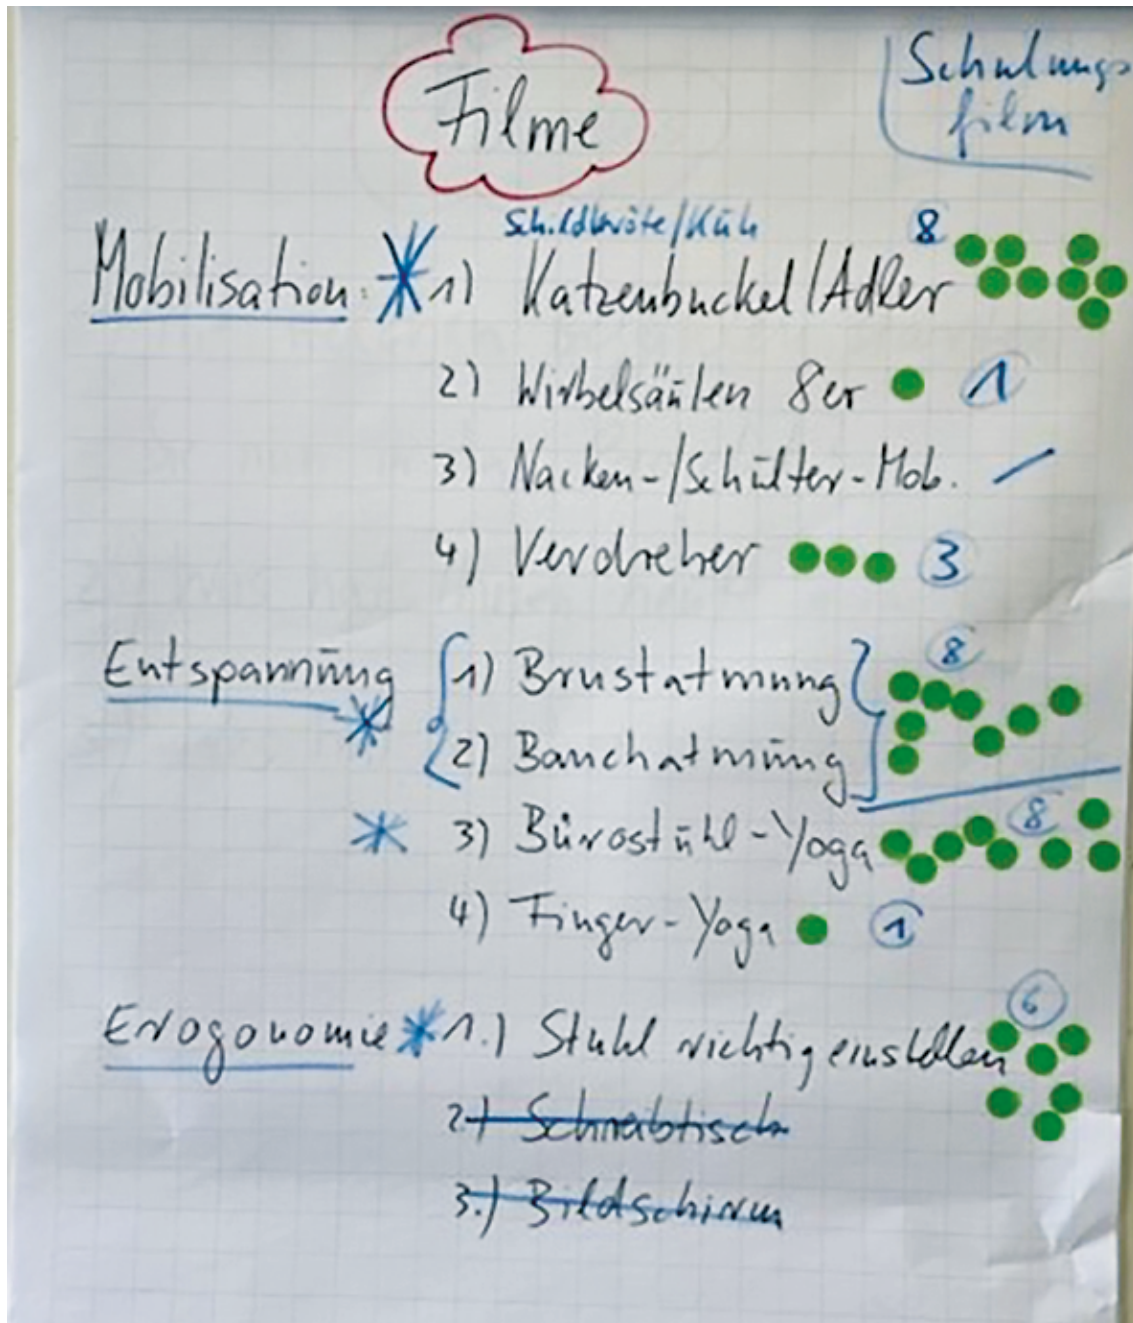 Filme
Schulungs
film
Schildkröte/Kuh
8
Mobilisation: 1) Katzenbuckel/Adler
2) Wirbelsäulen 8er 1
3) Nacken-/Schulter-Mob. /
4) Verdreher 3
8
Entspannung 1) Brustatmung
2) Bauchatmung
8
3) Bürostuhl-Yoga
4) Finger-Yoga 1
6
Erogonomie 1.) Stuhl richtig einstellen
2.) Schreibtisch
3.) Bildschirm